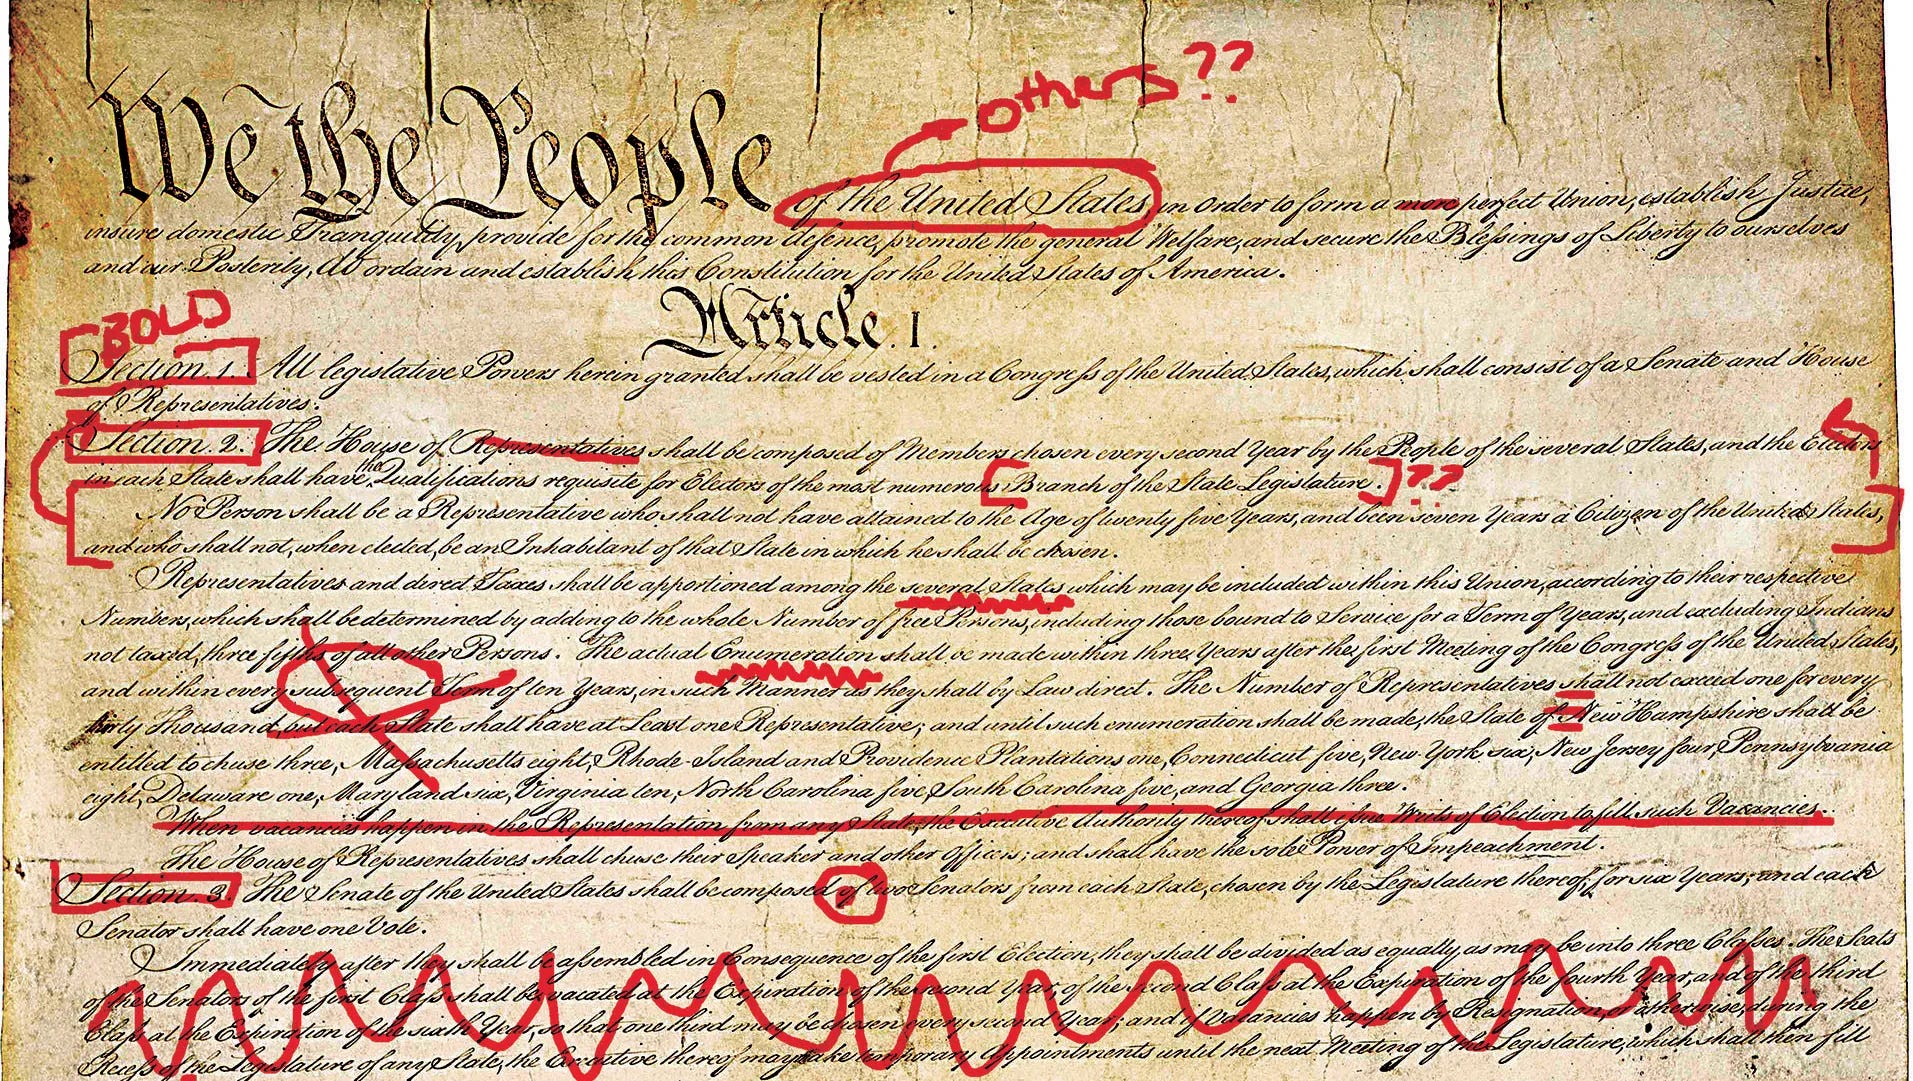 others??
We the People of the United States, in Order to form a more perfect Union, establish Justice,
insure domestic Tranquility, provide for the common defence, promote the general Welfare, and secure the Blessings of Liberty to ourselves
and our Posterity, do ordain and establish this Constitution for the United States of America.
BOLD
Article. I.
Section. 1. All legislative Powers herein granted shall be vested in a Congress of the United States, which shall consist of a Senate and House
of Representatives.
Section. 2. The House of Representatives shall be composed of Members chosen every second Year by the People of the several States, and the Electors
in each State shall have the Qualifications requisite for Electors of the most numerous [Branch of the State Legislature.]??
No Person shall be a Representative who shall not have attained to the Age of twenty five Years, and been seven Years a Citizen of the United States,
and who shall not, when elected, be an Inhabitant of that State in which he shall be chosen.
Representatives and direct Taxes shall be apportioned among the several States which may be included within this Union, according to their respective
Numbers, which shall be determined by adding to the whole Number of free Persons, including those bound to Service for a Term of Years, and excluding Indians
not taxed, three fifths of all other Persons. The actual Enumeration shall be made within three Years after the first Meeting of the Congress of the United States,
and within every subsequent Term of ten Years, in such Manner as they shall by Law direct. The Number of Representatives shall not exceed one for every
thirty Thousand, but each State shall have at Least one Representative; and until such enumeration shall be made, the State of New Hampshire shall be
entitled to chuse three, Massachusetts eight, Rhode-Island and Providence Plantations one, Connecticut five, New-York six, New Jersey four, Pennsylvania
eight, Delaware one, Maryland six, Virginia ten, North Carolina five, South Carolina five, and Georgia three.
When vacancies happen in the Representation from any State, the Executive Authority thereof shall issue Writs of Election to fill such Vacancies.
The House of Representatives shall chuse their Speaker and other Officers; and shall have the sole Power of Impeachment.
Section. 3. The Senate of the United States shall be composed of two Senators from each State, chosen by the Legislature thereof, for six Years; and each
Senator shall have one Vote.
Immediately after they shall be assembled in Consequence of the first Election, they shall be divided as equally as may be into three Classes. The Seats
of the Senators of the first Class shall be vacated at the Expiration of the second Year, of the second Class at the Expiration of the fourth Year, and of the third
Class at the Expiration of the sixth Year, so that one third may be chosen every second Year; and if Vacancies happen by Resignation, or otherwise, during the
Recess of the Legislature of any State, the Executive thereof may take temporary Appointments until the next Meeting of the Legislature, which shall then fill